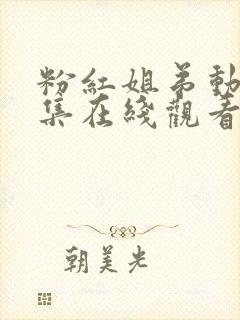 粉紅姐弟動
集在綫觀看
朝美光